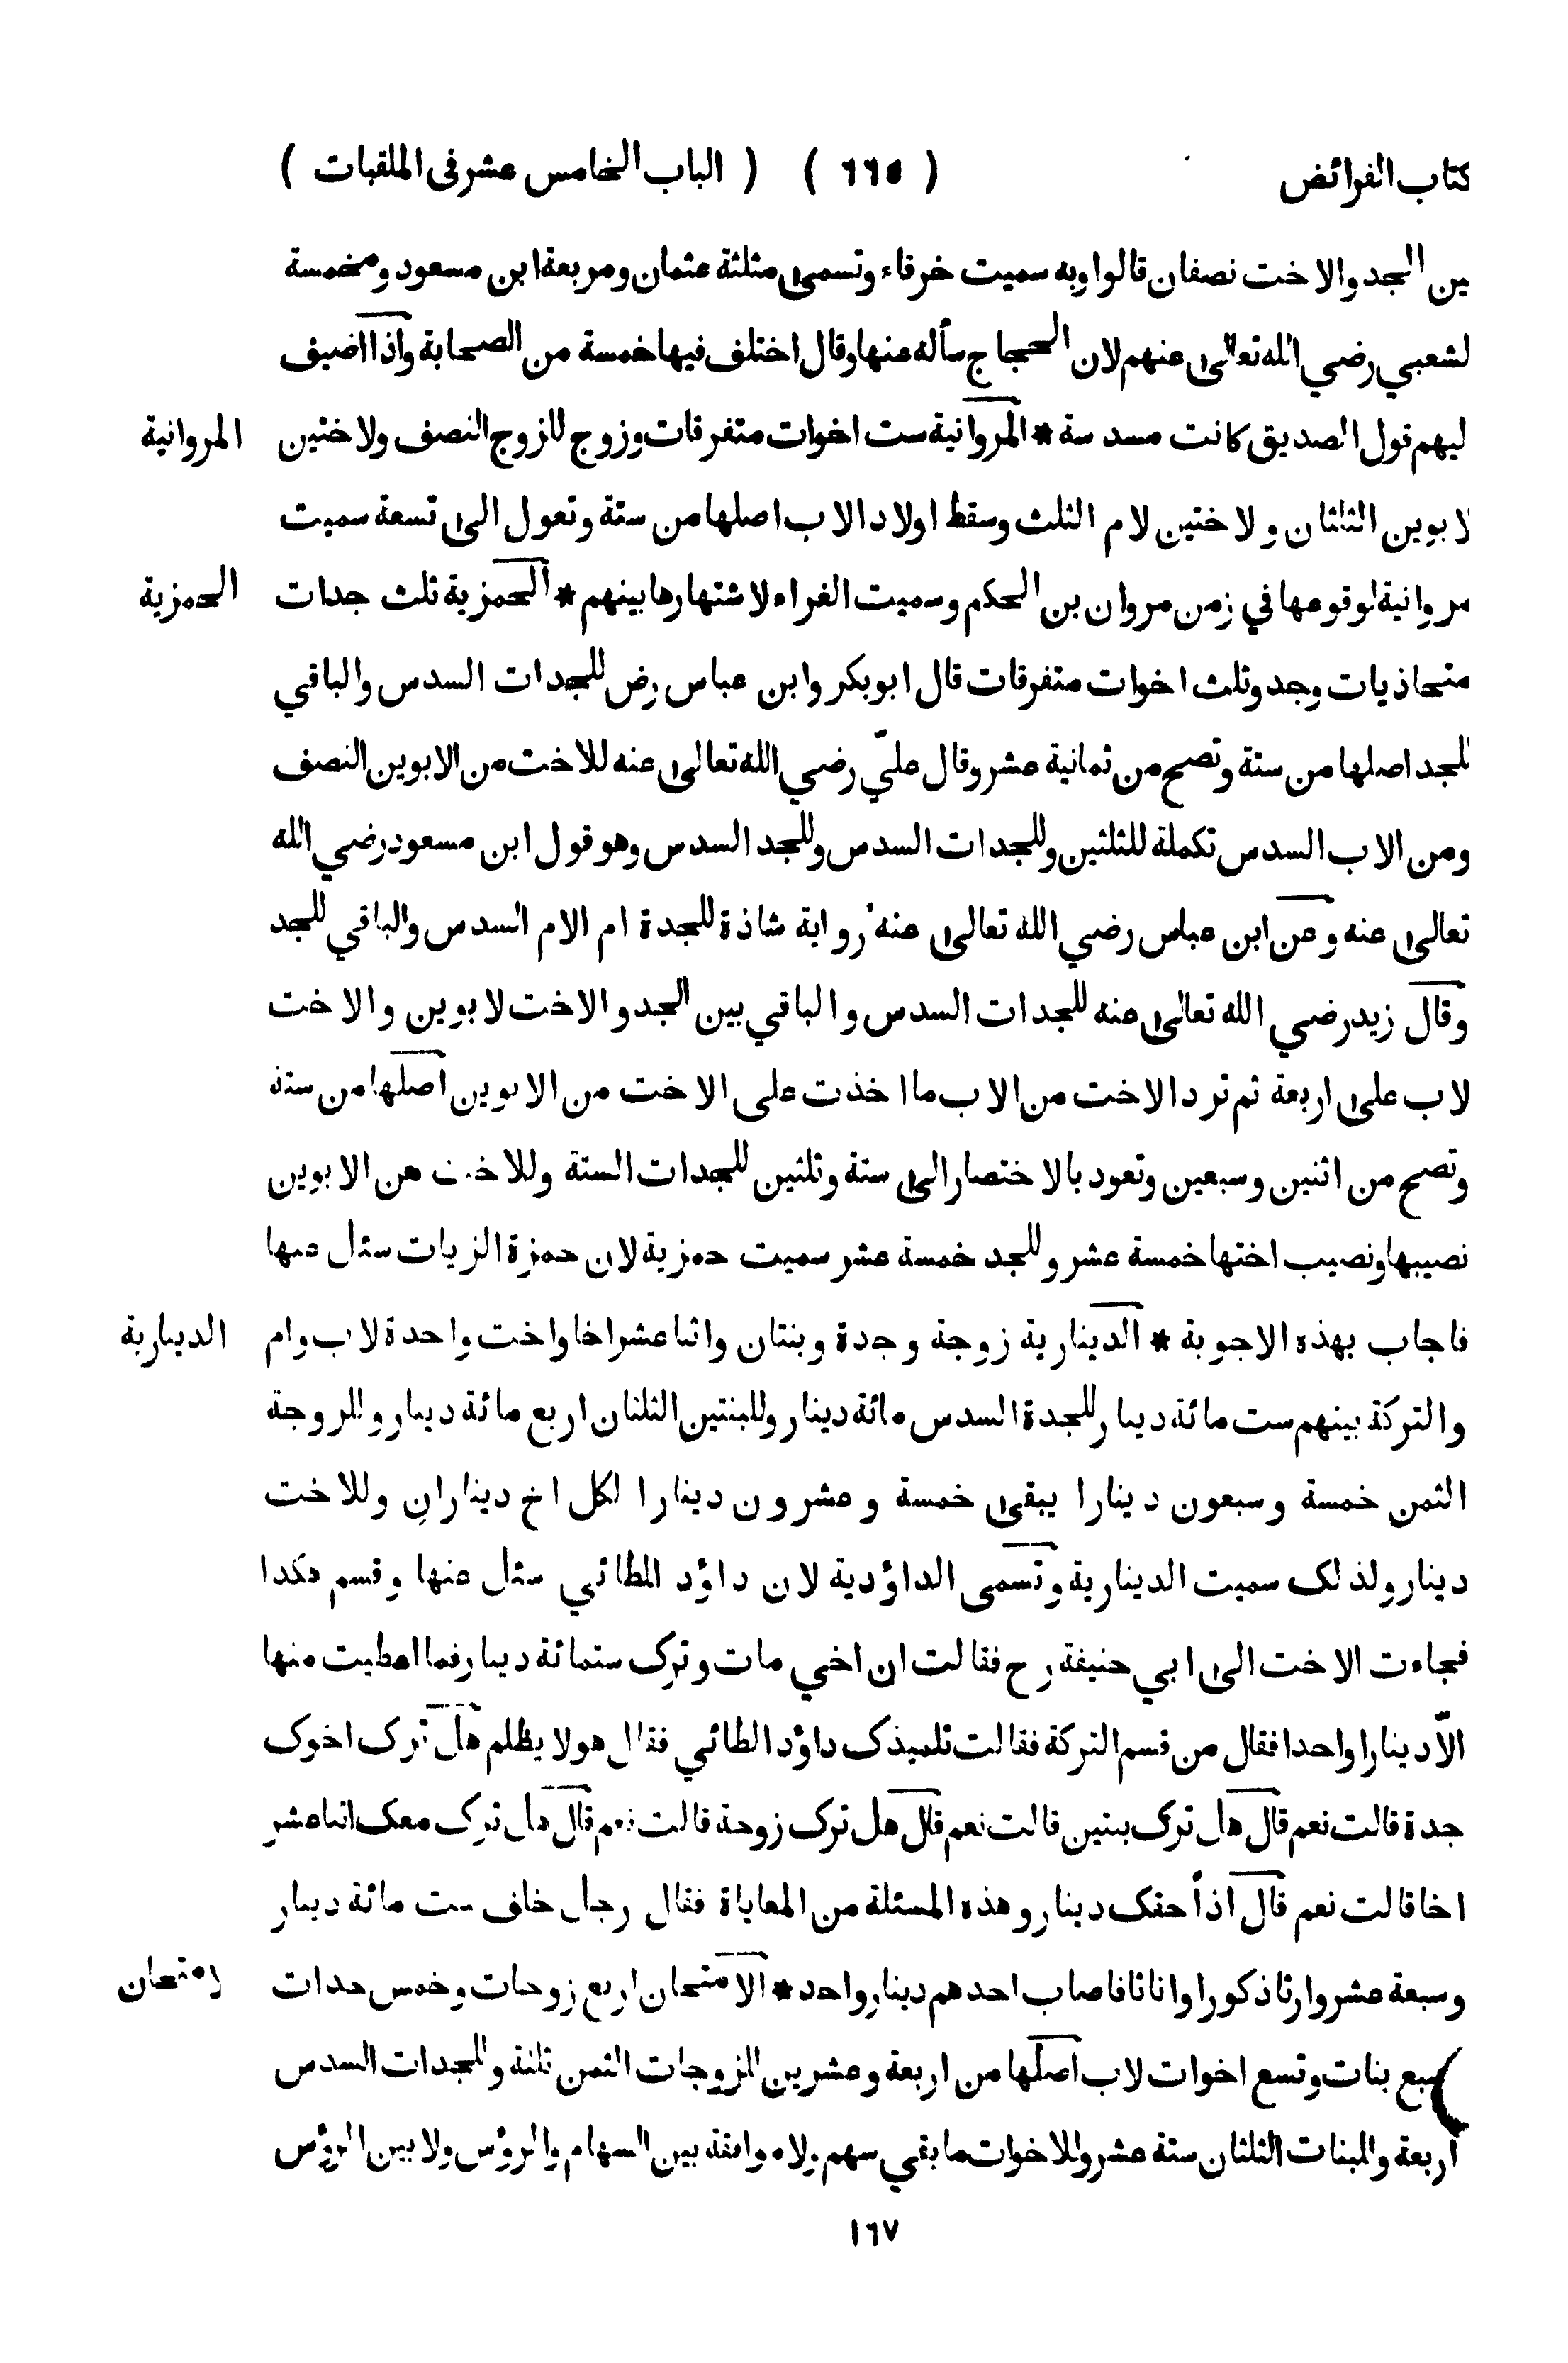 كتاب الفرائض ( ٦٦٥ ) ( الباب الخامس عشر فى الملقبات )
بين الجد والاخت نصفان قالوا وبه سميت خرقاء وتسمى مثلثة عثمان ومربعة ابن مسعود ومخمسة
لشعبي رضي الله تعالى عنهم لان الحجاج سأله عنها وقال اختلف فيها خمسة من الصحابة واذا اضيف
ليهم قول الصديق كانت مسدسة * المروانية ست اخوات متفرقات وزوج للزوج النصف ولاختين
المروانية
لا بوين الثلثان ولاختين لام الثلث وسقط اولاد الاب اصلها من ستة وتعول الى تسعة سميت
مروانية لوقوعها في زمن مروان بن الحكم وسميت الغراء لاشتهارها بينهم * الحمزية ثلث جدات
الحمزية
متحاذيات وجد وثلث اخوات متفرقات قال ابوبكر وابن عباس رض للجدات السدس والباقي
للجد اصلها من ستة وتصح من ثمانية عشر وقال عليّ رضي الله تعالى عنه للاخت من الابوين النصف
ومن الاب السدس تكملة للثلثين وللجدات السدس وللجد السدس وهو قول ابن مسعود رضي الله
تعالى عنه وعن ابن عباس رضي الله تعالى عنه رواية شاذة للجدة ام الام السدس والباقي للجد
وقال زيد رضي الله تعالى عنه للجدات السدس والباقي بين الجد والاخت لابوين والاخت
لاب على اربعة ثم ترد الاخت من الاب ما اخذت على الاخت من الابوين اصلها من ستة
وتصح من اثنين وسبعين وتعود بالاختصار الى ستة وثلثين للجدات الستة وللاخت من الابوين
نصيبها ونصيب اختها خمسة عشر وللجد خمسة عشر سميت حمزية لان حمزة الزيات سئل عنها
فاجاب بهذه الاجوبة * الدينارية زوجة وجدة وبنتان واثنا عشر اخا واخت واحدة لاب وام
الدينارية
والتركة بينهم ست مائة دينار للجدة السدس مائة دينار وللبنتين الثلثان اربع مائة دينار وللزوجة
الثمن خمسة وسبعون دينارا يبقى خمسة وعشرون دينارا لكل اخ ديناران وللاخت
دينار ولذلك سميت الدينارية وتسمى الداؤدية لان داؤد الطائي سئل عنها وقسم هكذا
فجاءت الاخت الى ابي حنيفة رح فقالت ان اخي مات وترك ستمائة دينار فما اعطيت منها
الّا دينارا واحدا فقال من قسم التركة فقالت تلميذك داؤد الطائي فقال هو لا يظلم هل ترك اخوك
جدة قالت نعم قال هل ترك بنتين قالت نعم قال هل ترك زوجة قالت نعم قال هل ترك معك اثنا عشر
اخا قالت نعم قال اذاً حقك دينار وهذه المسئلة من المعاياة فقال رجل خلف ست مائة دينار
وسبعة عشر وارثا ذكورا واناثا فاصاب احدهم دينار واحد * الامتحان اربع زوجات وخمس جدات
امتحان
سبع بنات وتسع اخوات لاب اصلها من اربعة وعشرين للزوجات الثمن ثلثة وللجدات السدس
اربعة وللبنات الثلثان ستة عشر وللاخوات ما بقي سهم ولا موافقة بين السهام والرؤس ولا بين الرؤس
١٦٧